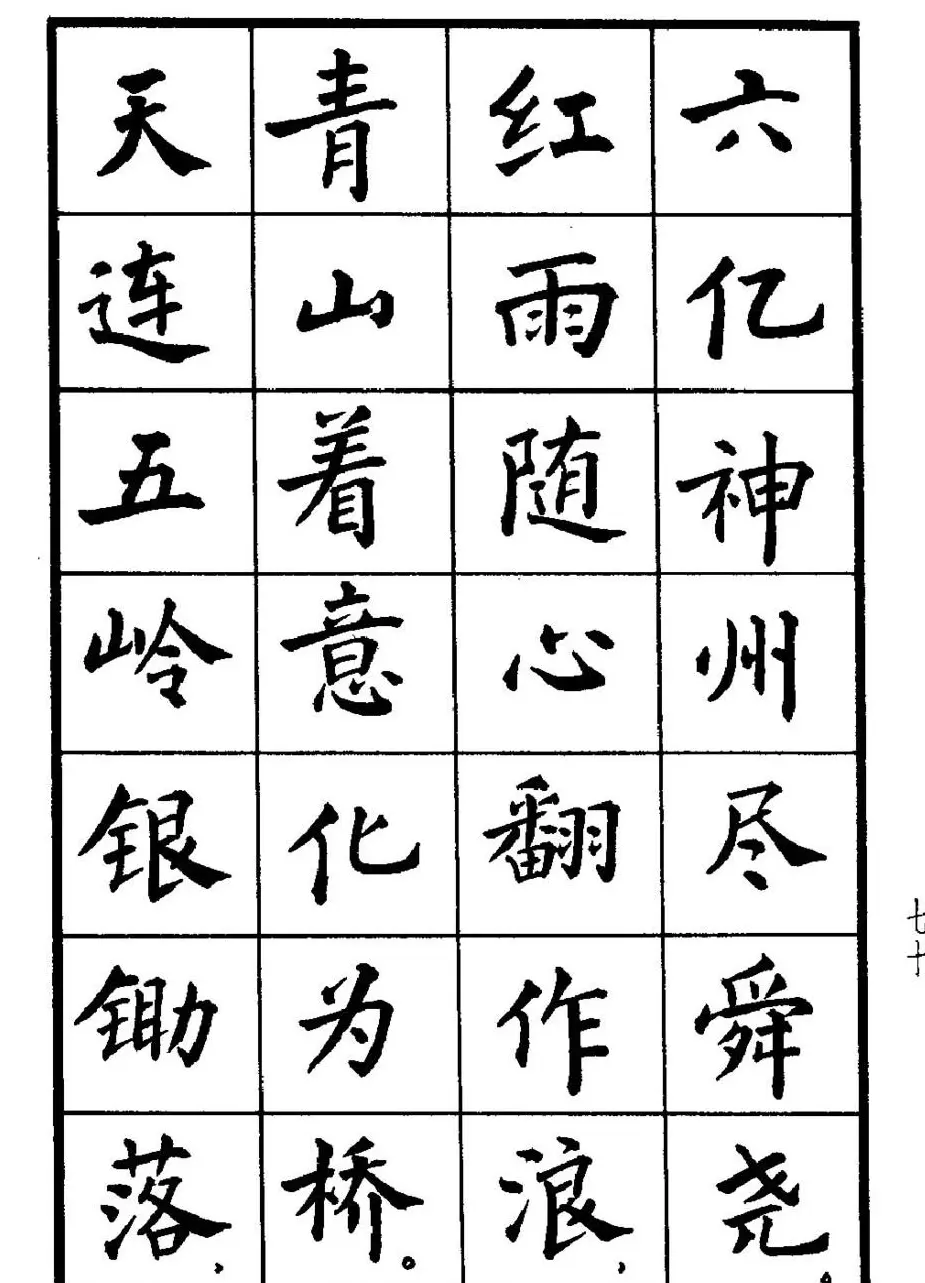 六亿神州尽舜尧。
红雨随心翻作浪,
青山着意化为桥。
天连五岭银锄落,
七十